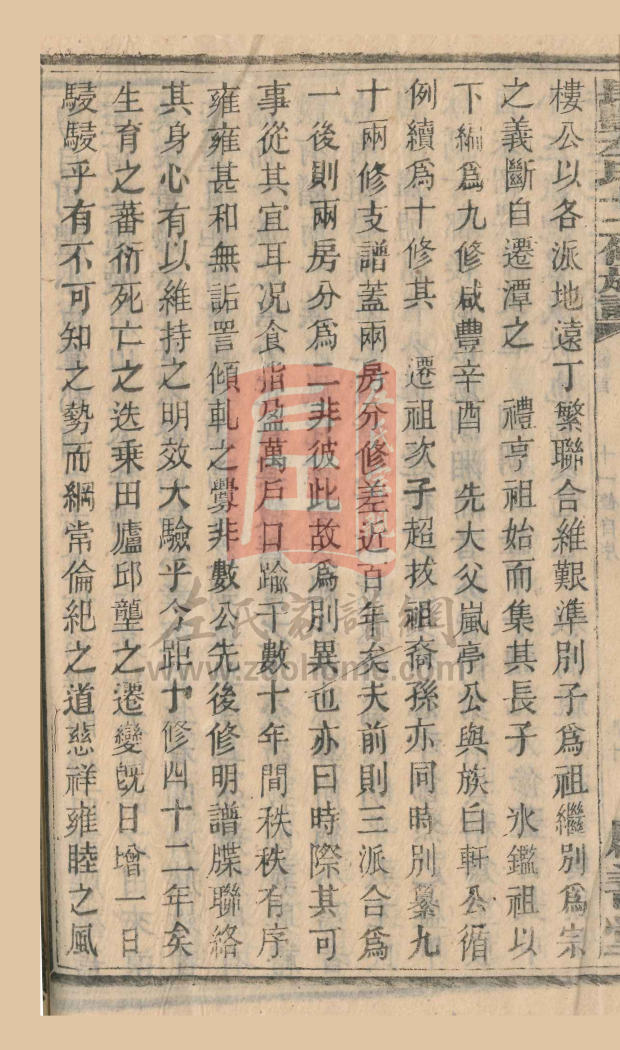 樓公以各派地遠丁繁聯合維艱準別子爲祖繼別爲宗
之義斷自遷潭之 禮亨祖始而集其長子 氷鑑祖以
下編爲九修咸豐辛酉 先大父嵐亭公與族白軒公循
例續爲十修其 遷祖次子超拔祖裔孫亦同時別纂九
十兩修支譜蓋兩房分修差近百年矣夫前則三派合爲
一後則兩房分爲二非彼此故爲別異也亦曰時際其可
事從其宜耳况食指盈萬戶口踰千數十年間秩秩有序
雍雍甚和無詬詈傾軋之釁非數公先後修明譜牒聯絡
其身心有以維持之明效大驗乎今距十修四十二年矣
生育之蕃衍死亡之迭乗田廬邱壟之遷變旣日增一日
駸駸乎有不可知之勢而綱常倫紀之道慈祥雍睦之風
左氏家譜網
www.zgohome.com